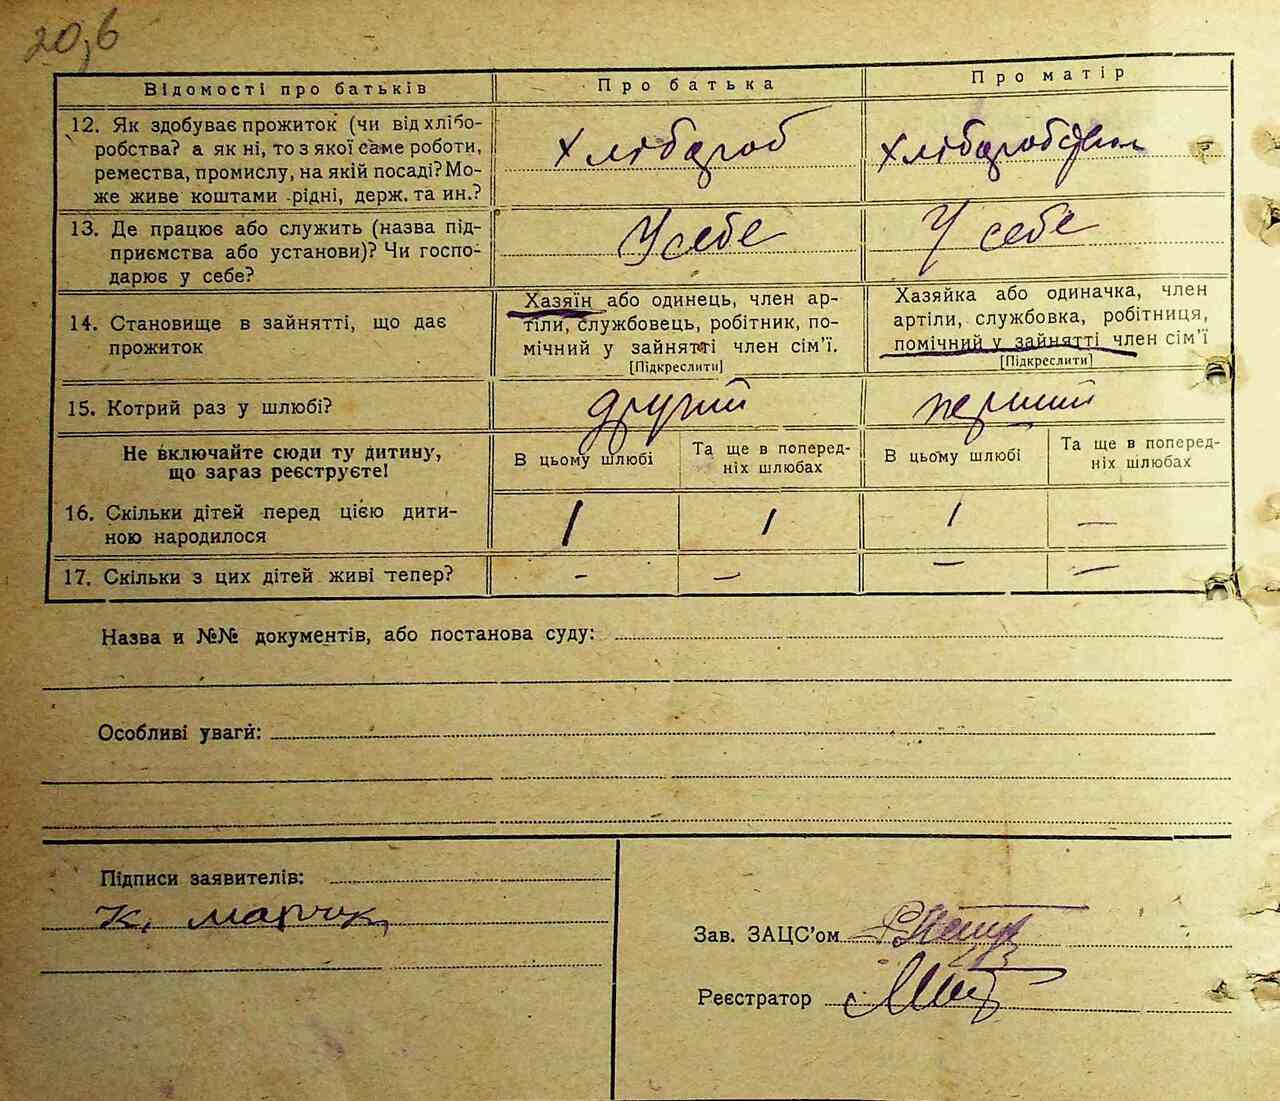 20,6
Відомості про батьків
Про батька
Про матір
12. Як здобуває прожиток (чи від хлібо-
робства? а як ні, то з якої саме роботи,
ремества, промислу, на якій посаді? Мо-
же живе коштами рідні, держ. та ин.?
Хлібороб
Хліборобство
13. Де працює або служить (назва під-
приємства або установи)? Чи госпо-
дарює у себе?
У себе
У себе
14. Становище в зайнятті, що дає
прожиток
Хазяїн або одинець, член ар-
тіли, службовець, робітник, по-
мічний у зайнятті член сім'ї.
[Підкреслити]
Хазяйка або одиначка, член
артіли, службовка, робітниця,
помічний у зайнятті член сім'ї
[Підкреслити]
15. Котрий раз у шлюбі?
другий
перший
Не включайте сюди ту дитину,
що зараз реєструєте!
В цьому шлюбі
Та ще в поперед-
ніх шлюбах
В цьому шлюбі
Та ще в поперед-
ніх шлюбах
16. Скільки дітей перед цією дити-
ною народилося
1
1
1
—
17. Скільки з цих дітей живі тепер?
-
—
—
—
Назва и №№ документів, або постанова суду:
Особливі уваги:
Підписи заявителів:
К. Марчук
Зав. ЗАЦС'ом
Реєстратор